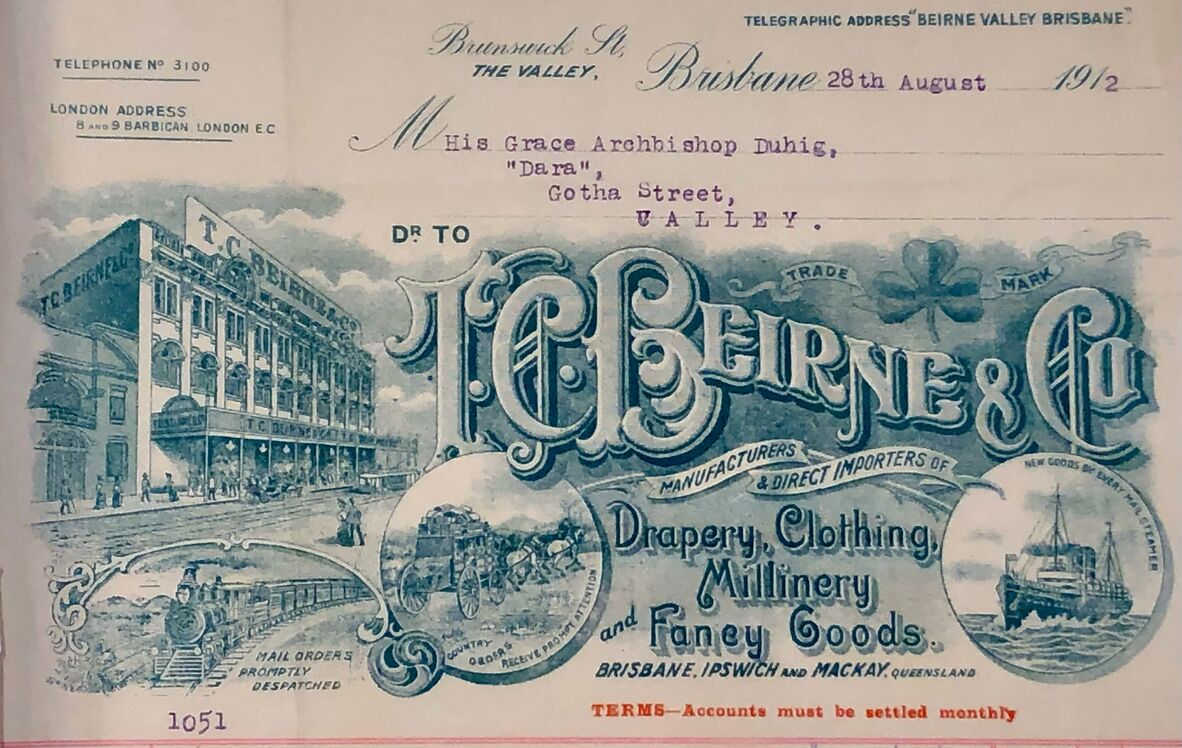 TELEGRAPHIC ADDRESS "BEIRNE VALLEY BRISBANE".
TELEPHONE Nº 3100
LONDON ADDRESS
8 AND 9 BARBICAN LONDON E.C.
Brunswick St,
THE VALLEY,
Brisbane 28th August 1912
M His Grace Archbishop Duhig,
"Dara",
Gotha Street,
VALLEY.
DR TO
T.C. BEIRNE & Co
T.C BEIRNE & Co
T.C. BEIRNE & Co
TRADE MARK
MANUFACTURERS
& DIRECT IMPORTERS OF
Drapery, Clothing,
Millinery
and Fancy Goods.
BRISBANE, IPSWICH AND MACKAY, QUEENSLAND
NEW GOODS BY EVERY MAIL STEAMER
COUNTRY ORDERS RECEIVE PROMPT ATTENTION
MAIL ORDERS
PROMPTLY
DESPATCHED
1051
TERMS—Accounts must be settled monthly